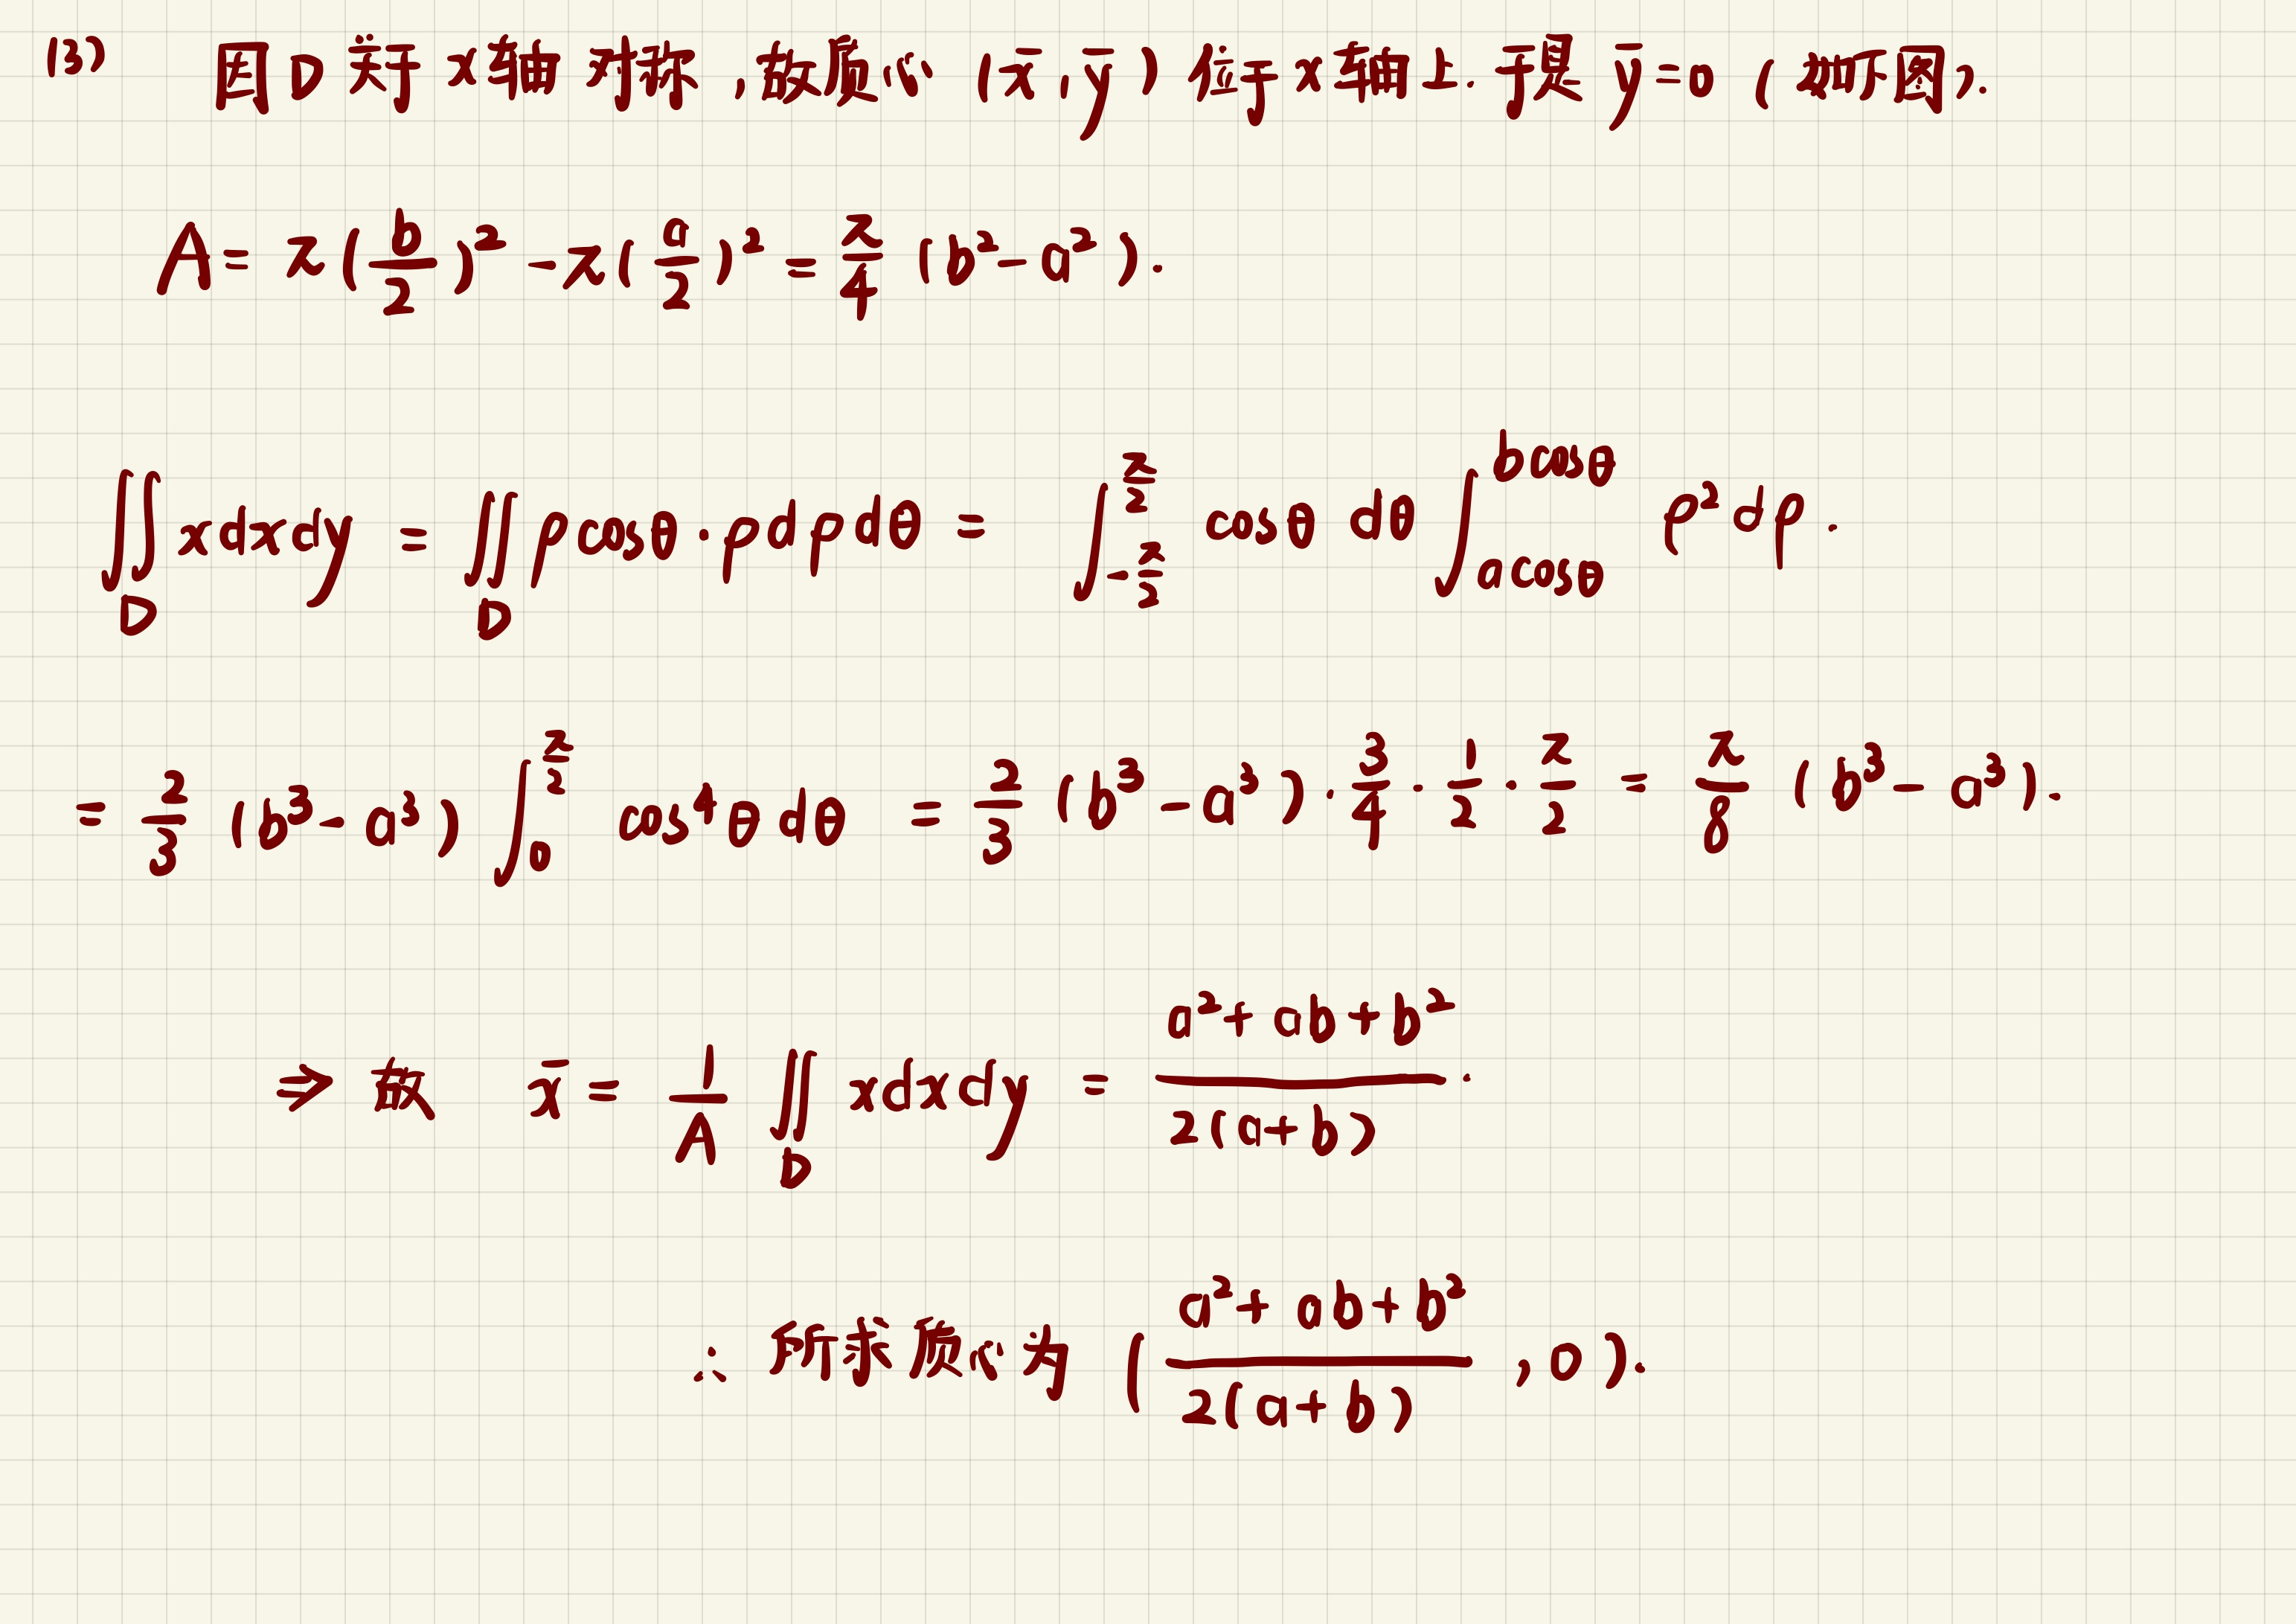 (3) 因D关于x轴对称,故质心(x̄,ȳ)位于x轴上.于是ȳ=0(如下图).
A = π(b/2)² - π(a/2)² = π/4 (b²-a²).
∬_D xdxdy = ∬_D ρcosθ·ρdρdθ = ∫_{-π/2}^{π/2} cosθ dθ ∫_{acosθ}^{bcosθ} ρ²dρ.
= 2/3 (b³-a³) ∫_0^{π/2} cos⁴θdθ = 2/3 (b³-a³)·3/4·1/2·π/2 = π/8 (b³-a³).
⇒ 故 x̄ = 1/A ∬_D xdxdy = (a²+ab+b²)/(2(a+b)).
∴ 所求质心为 ((a²+ab+b²)/(2(a+b)), 0).